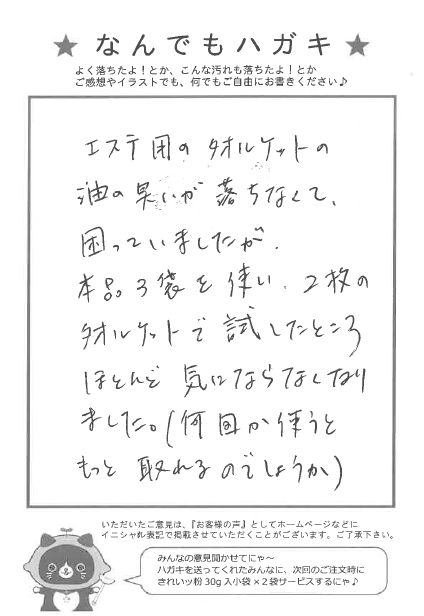 ★ なんでもハガキ ★
よく落ちたよ！とか、こんな汚れも落ちたよ！とか
ご感想やイラストでも、何でもご自由にお書きください♪
エステ用のタオルケットの
油の臭いが落ちなくて、
困っていましたが、
本品3袋を使い、2枚の
タオルケットで試したところ
ほとんど気にならなくなり
ました。(何回か使うと
もっと取れるのでしょうか)
いただいたご意見は、『お客様の声』としてホームページなどに
イニシャル表記で掲載させていただくことがございます。ご了承下さい。
みんなの意見聞かせてにゃ～
ハガキを送ってくれたみんなに、次回のご注文時に
きれいッ粉30g入小袋×2袋サービスするにゃ♪